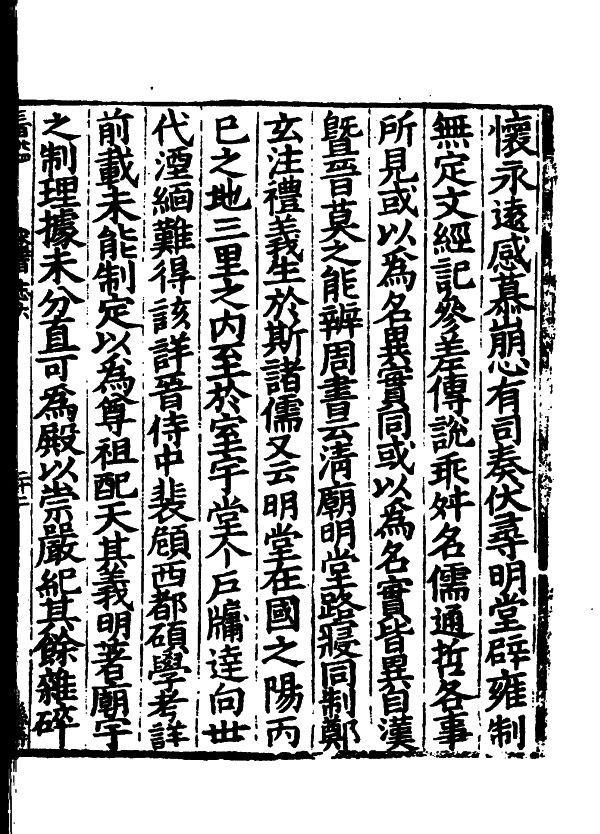 懷永遠感慕崩心有司奏伏尋明堂辟雍制
無定文經記參差傳說乖舛名儒通哲各事
所見或以為名異實同或以為名實皆異自漢
曁晉莫之能辨周書云清廟明堂路寢同制鄭
玄注禮義生於斯諸儒又云明堂在國之陽丙
巳之地三里之內至於室宇堂个戶牖達向世
代湮緬難得該詳晉侍中裴頠西都碩學考詳
前載未能制定以為尊祖配天其義明著廟宇
之制理據未分直可為殿以崇嚴祀其餘雜碎